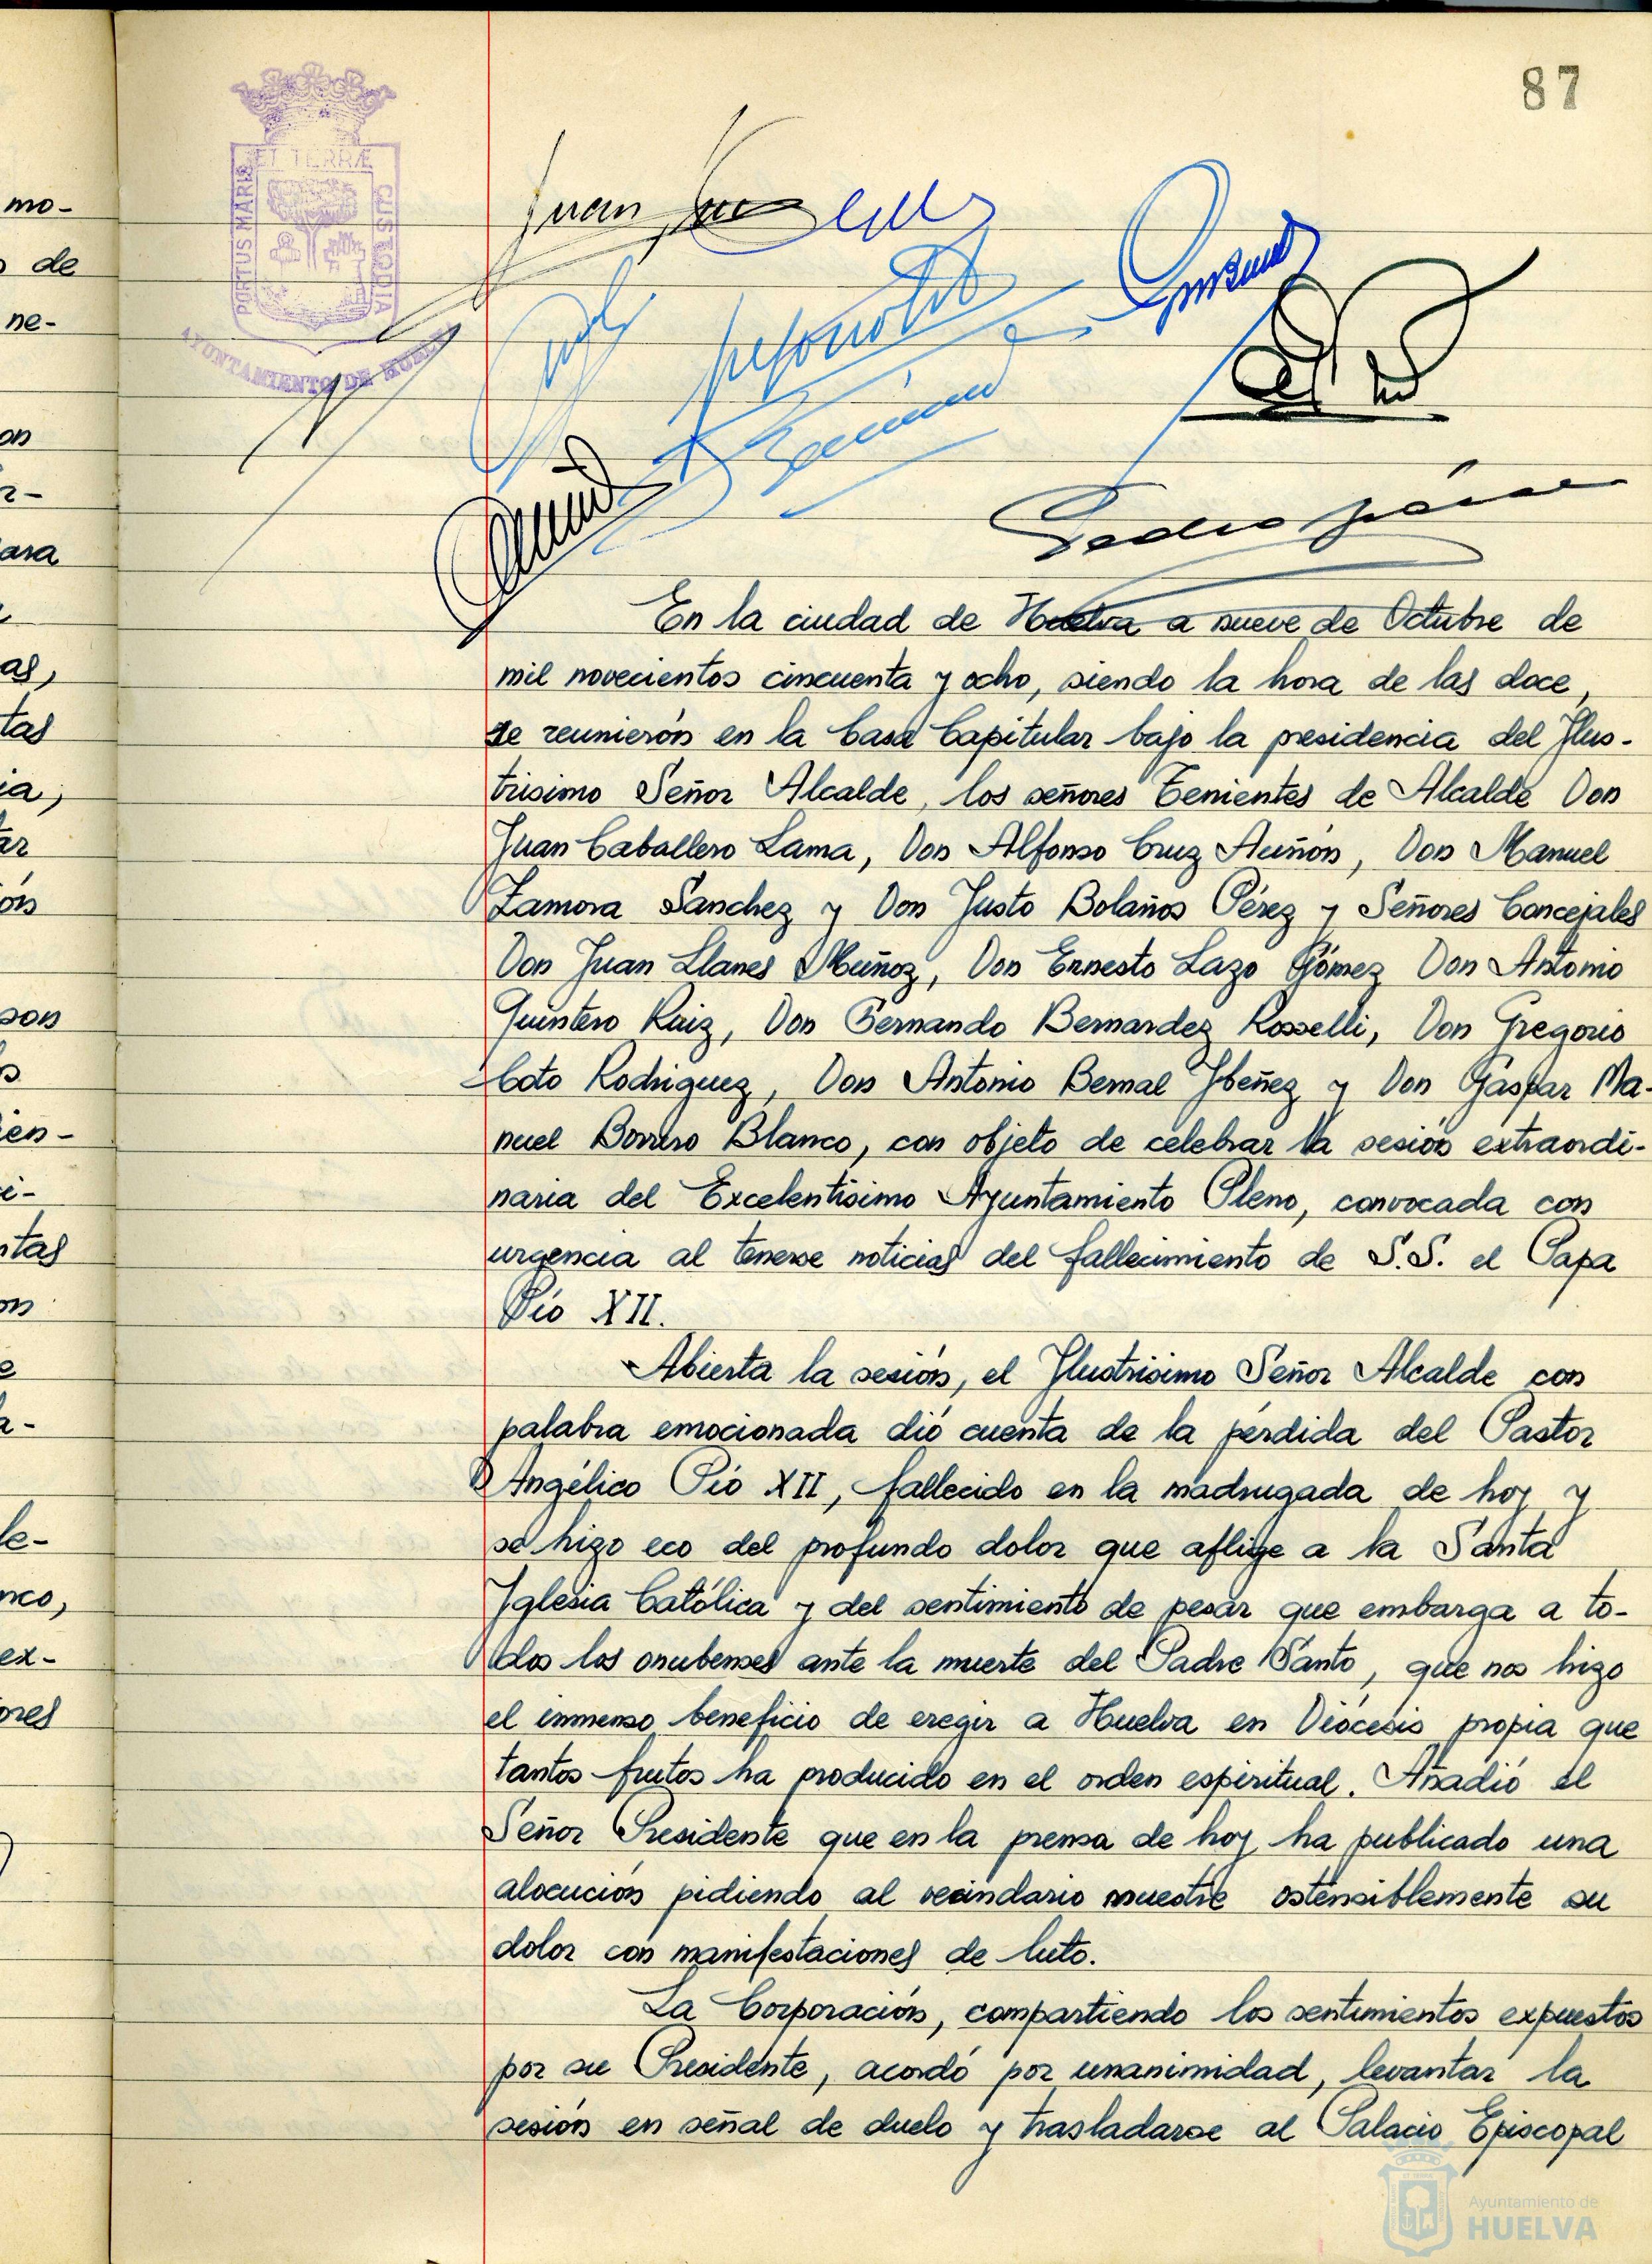 87
ET TERRÆ
PORTUS MARIS
CUSTODIA
AYUNTAMIENTO DE HUELVA
mo-
de
ne-
Juan
Pedro
En la ciudad de Huelva a nueve de Octubre de
mil novecientos cincuenta y ocho, siendo la hora de las doce,
se reunierón en la Casa Capitular bajo la presidencia del Ilus-
trisimo Señor Alcalde, los señores Tenientes de Alcalde Don
Juan Caballero Lama, Don Alfonso Cruz Auñón, Don Manuel
Zamora Sanchez y Don Justo Bolaños Pérez y Señores Concejales
Don Juan Llanes Muñoz, Don Ernesto Lazo Gómez Don Antonio
Quintero Ruiz, Don Fernando Bernardez Rosselli, Don Gregorio
Coto Rodriguez, Don Antonio Bernal Ybeñez y Don Gaspar Ma-
nuel Borrero Blanco, con objeto de celebrar la sesión extraordi-
naria del Excelentísimo Ayuntamiento Pleno, convocada con
urgencia al tenerse noticias del fallecimiento de S.S. el Papa
Pío XII.
Abierta la sesión, el Ilustrisimo Señor Alcalde con
palabra emocionada dió cuenta de la pérdida del Pastor
Angélico Pío XII, fallecido en la madrugada de hoy y
se hizo eco del profundo dolor que aflige a la Santa
Iglesia Católica y del sentimiento de pesar que embarga a to-
dos los onubenses ante la muerte del Padre Santo, que nos hizo
el inmenso beneficio de eregir a Huelva en Diócesis propia que
tantos frutos ha producido en el orden espiritual. Añadió el
Señor Presidente que en la prensa de hoy ha publicado una
alocución pidiendo al vecindario muestre ostensiblemente su
dolor con manifestaciones de luto.
La Corporación, compartiendo los sentimientos expuestos
por su Presidente, acordó por unanimidad, levantar la
sesión en señal de duelo y trasladarse al Palacio Episcopal
Ayuntamiento de
HUELVA